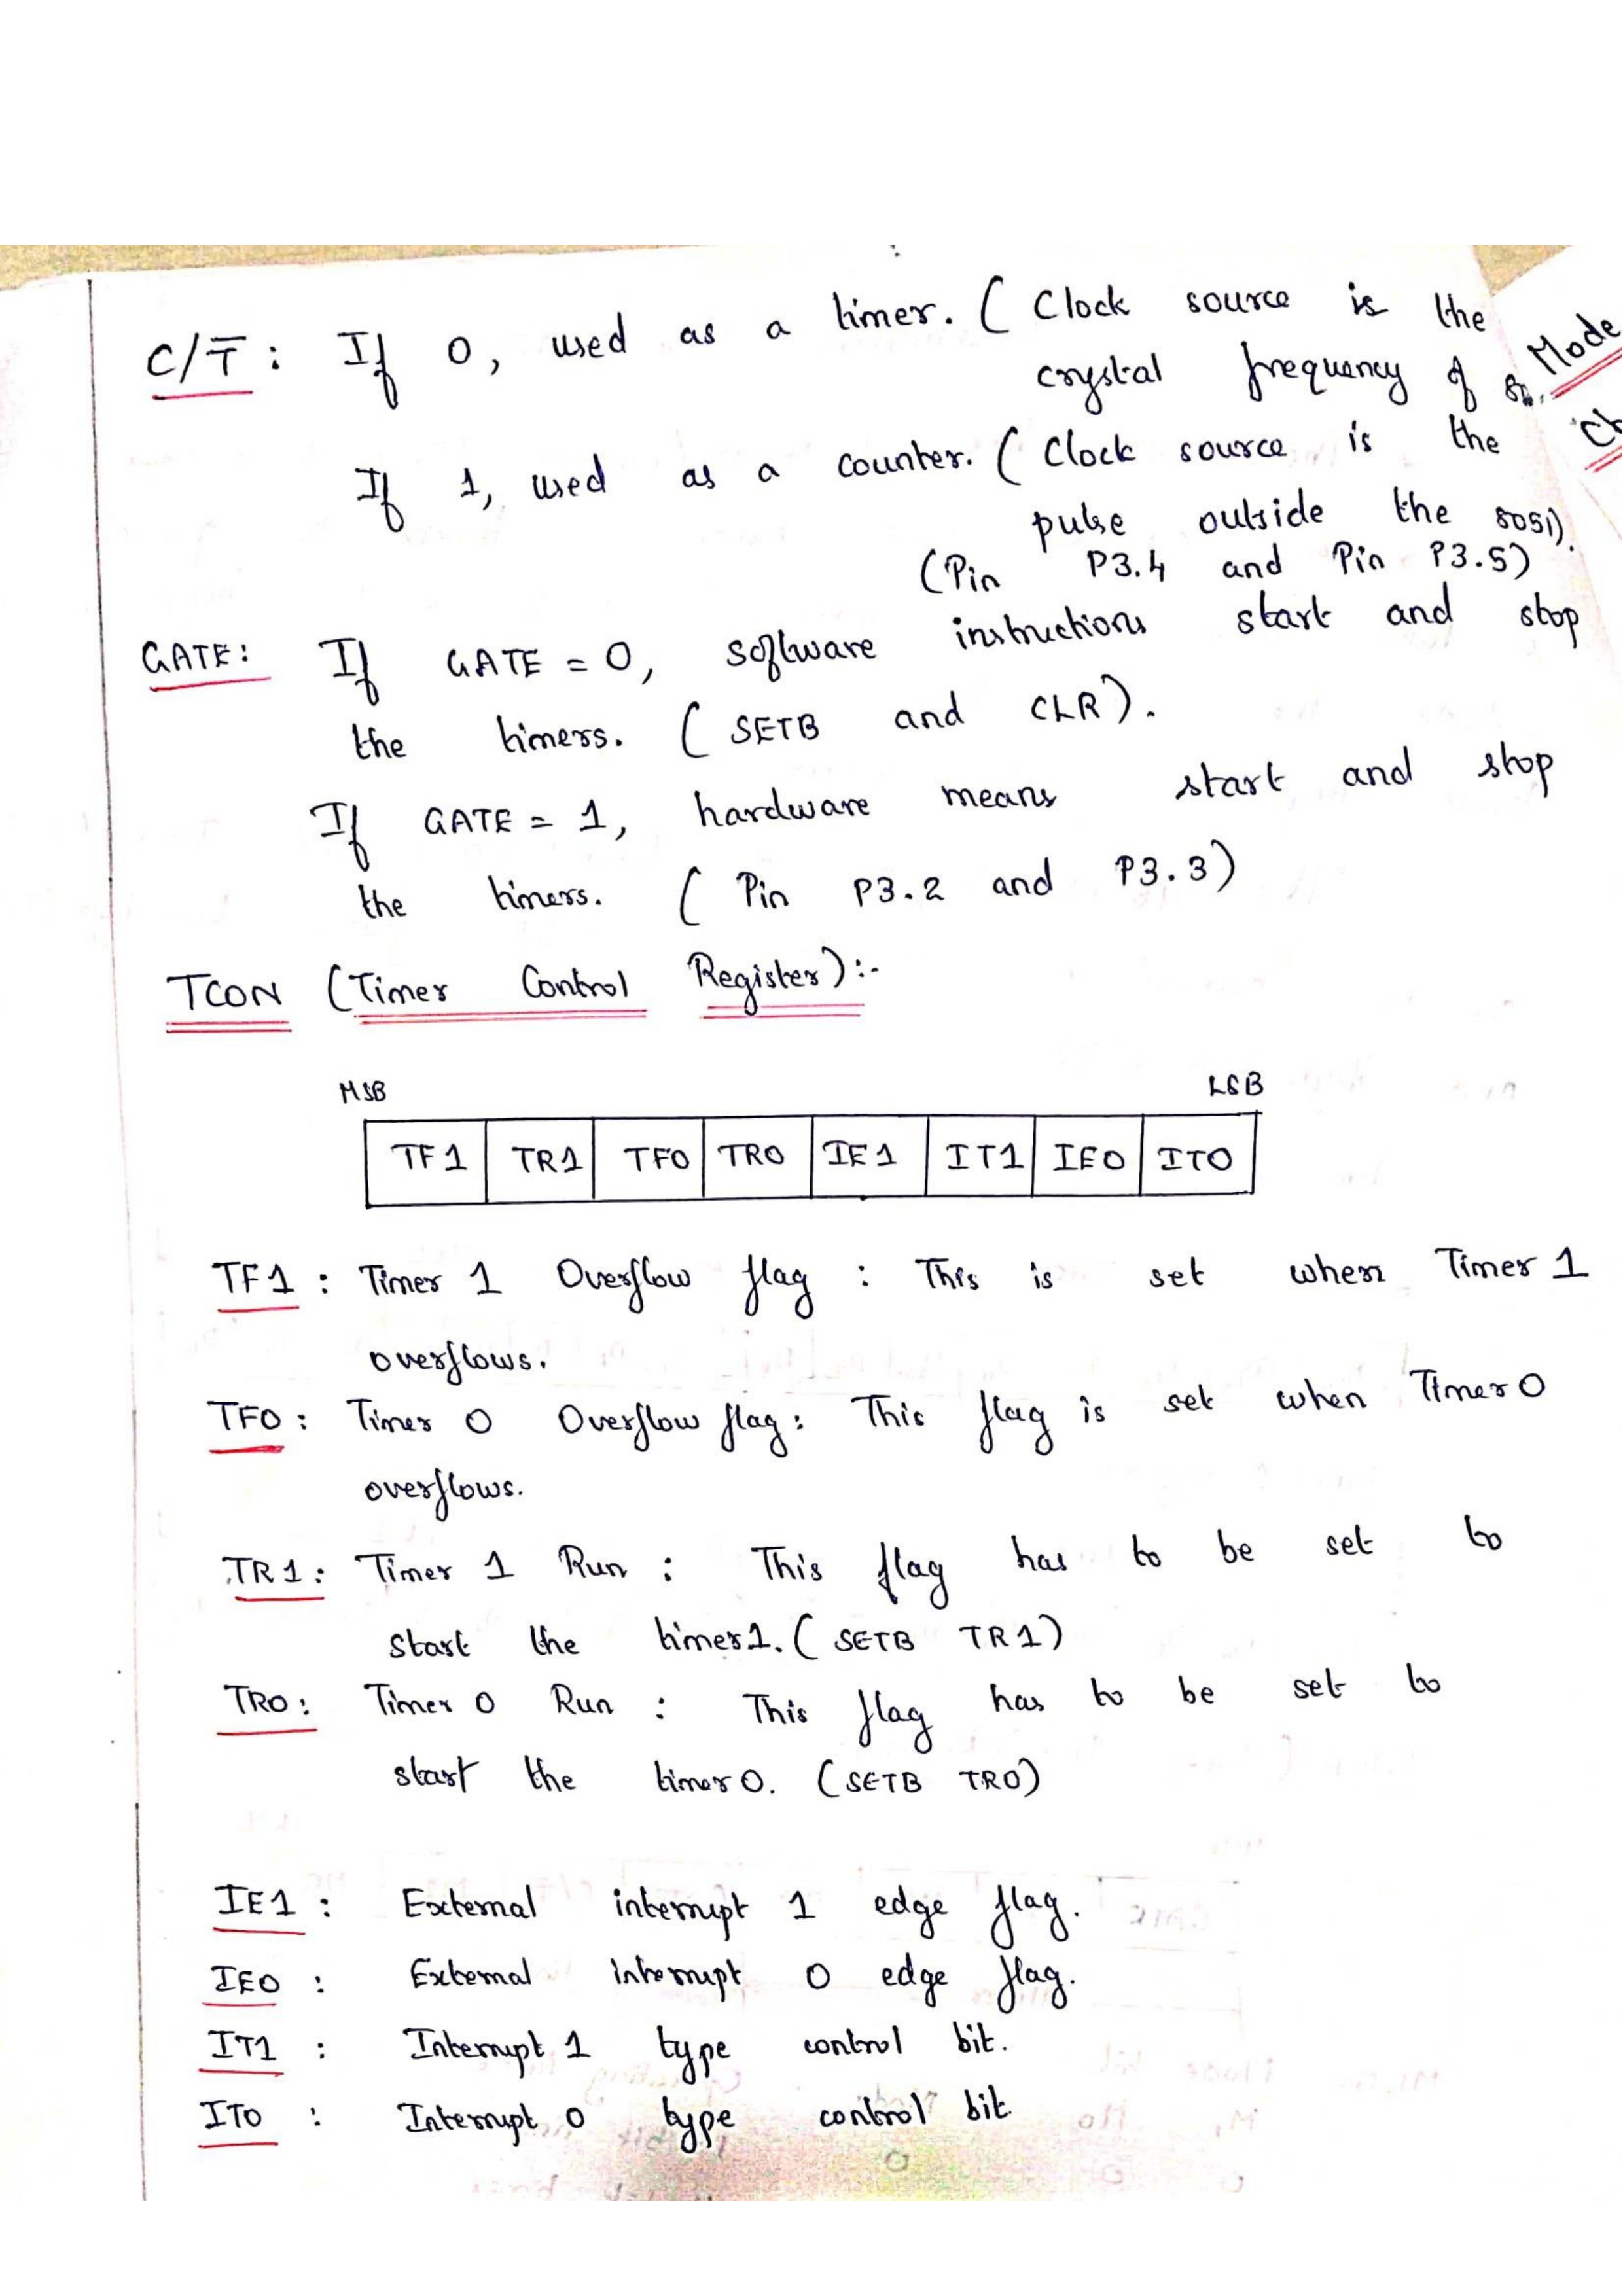 C/T̅ : If 0, used as a timer. ( Clock source is the
crystal frequency of
If 1, used as a counter. ( Clock source is the
pulse outside the 8051).
(Pin P3.4 and Pin P3.5)
GATE: If GATE = 0, software instructions start and stop
the timers. ( SETB and CLR ).
If GATE = 1, hardware means start and stop
the timers. ( Pin P3.2 and P3.3 )
TCON (Timer Control Register):-
MSB LSB
TF1 TR1 TF0 TR0 IE1 IT1 IE0 IT0
TF1 : Timer 1 Overflow flag : This is set when Timer 1
overflows.
TF0 : Timer 0 Overflow flag: This flag is set when Timer 0
overflows.
TR1 : Timer 1 Run : This flag has to be set to
start the timer1. ( SETB TR1 )
TR0 : Timer 0 Run : This flag has to be set to
start the timer 0. (SETB TR0)
IE1 : External interrupt 1 edge flag.
IE0 : External interrupt 0 edge flag.
IT1 : Interrupt 1 type control bit.
IT0 : Interrupt 0 type control bit.
Mode